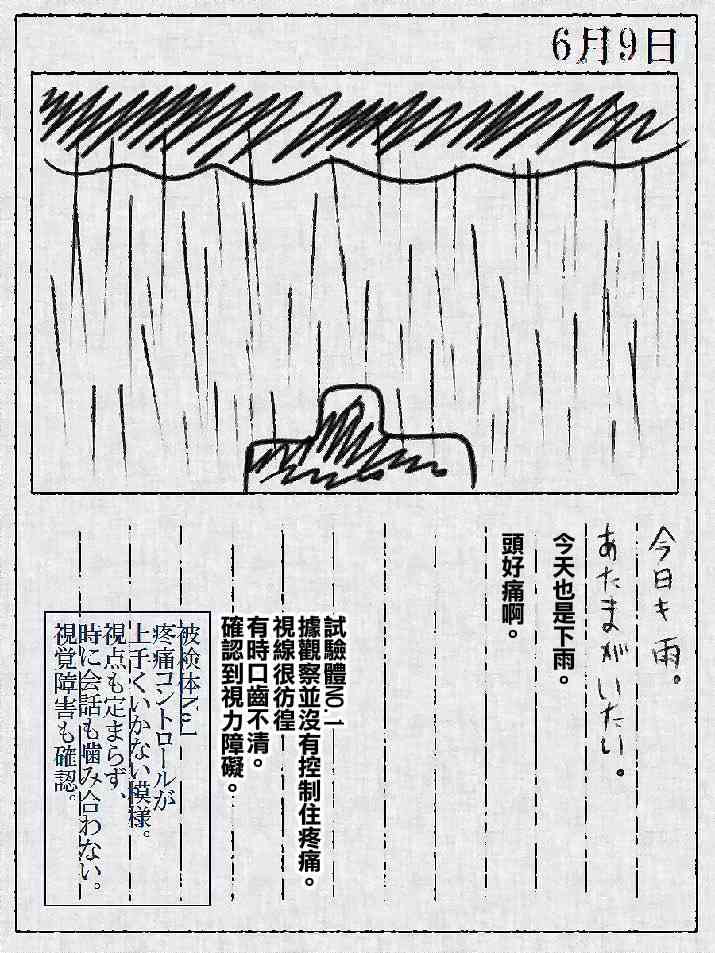 6月9日
今日も雨。
あたまがいたい。
今天也是下雨。
頭好痛啊。
試驗體NO.1
據觀察並沒有控制住疼痛。
視線很彷徨
有時口齒不清。
確認到視力障礙。
被検体№1
疼痛コントロールが
上手くいかない模様。
視点も定まらず、
時に会話も噛み合わない。
視覚障害も確認。